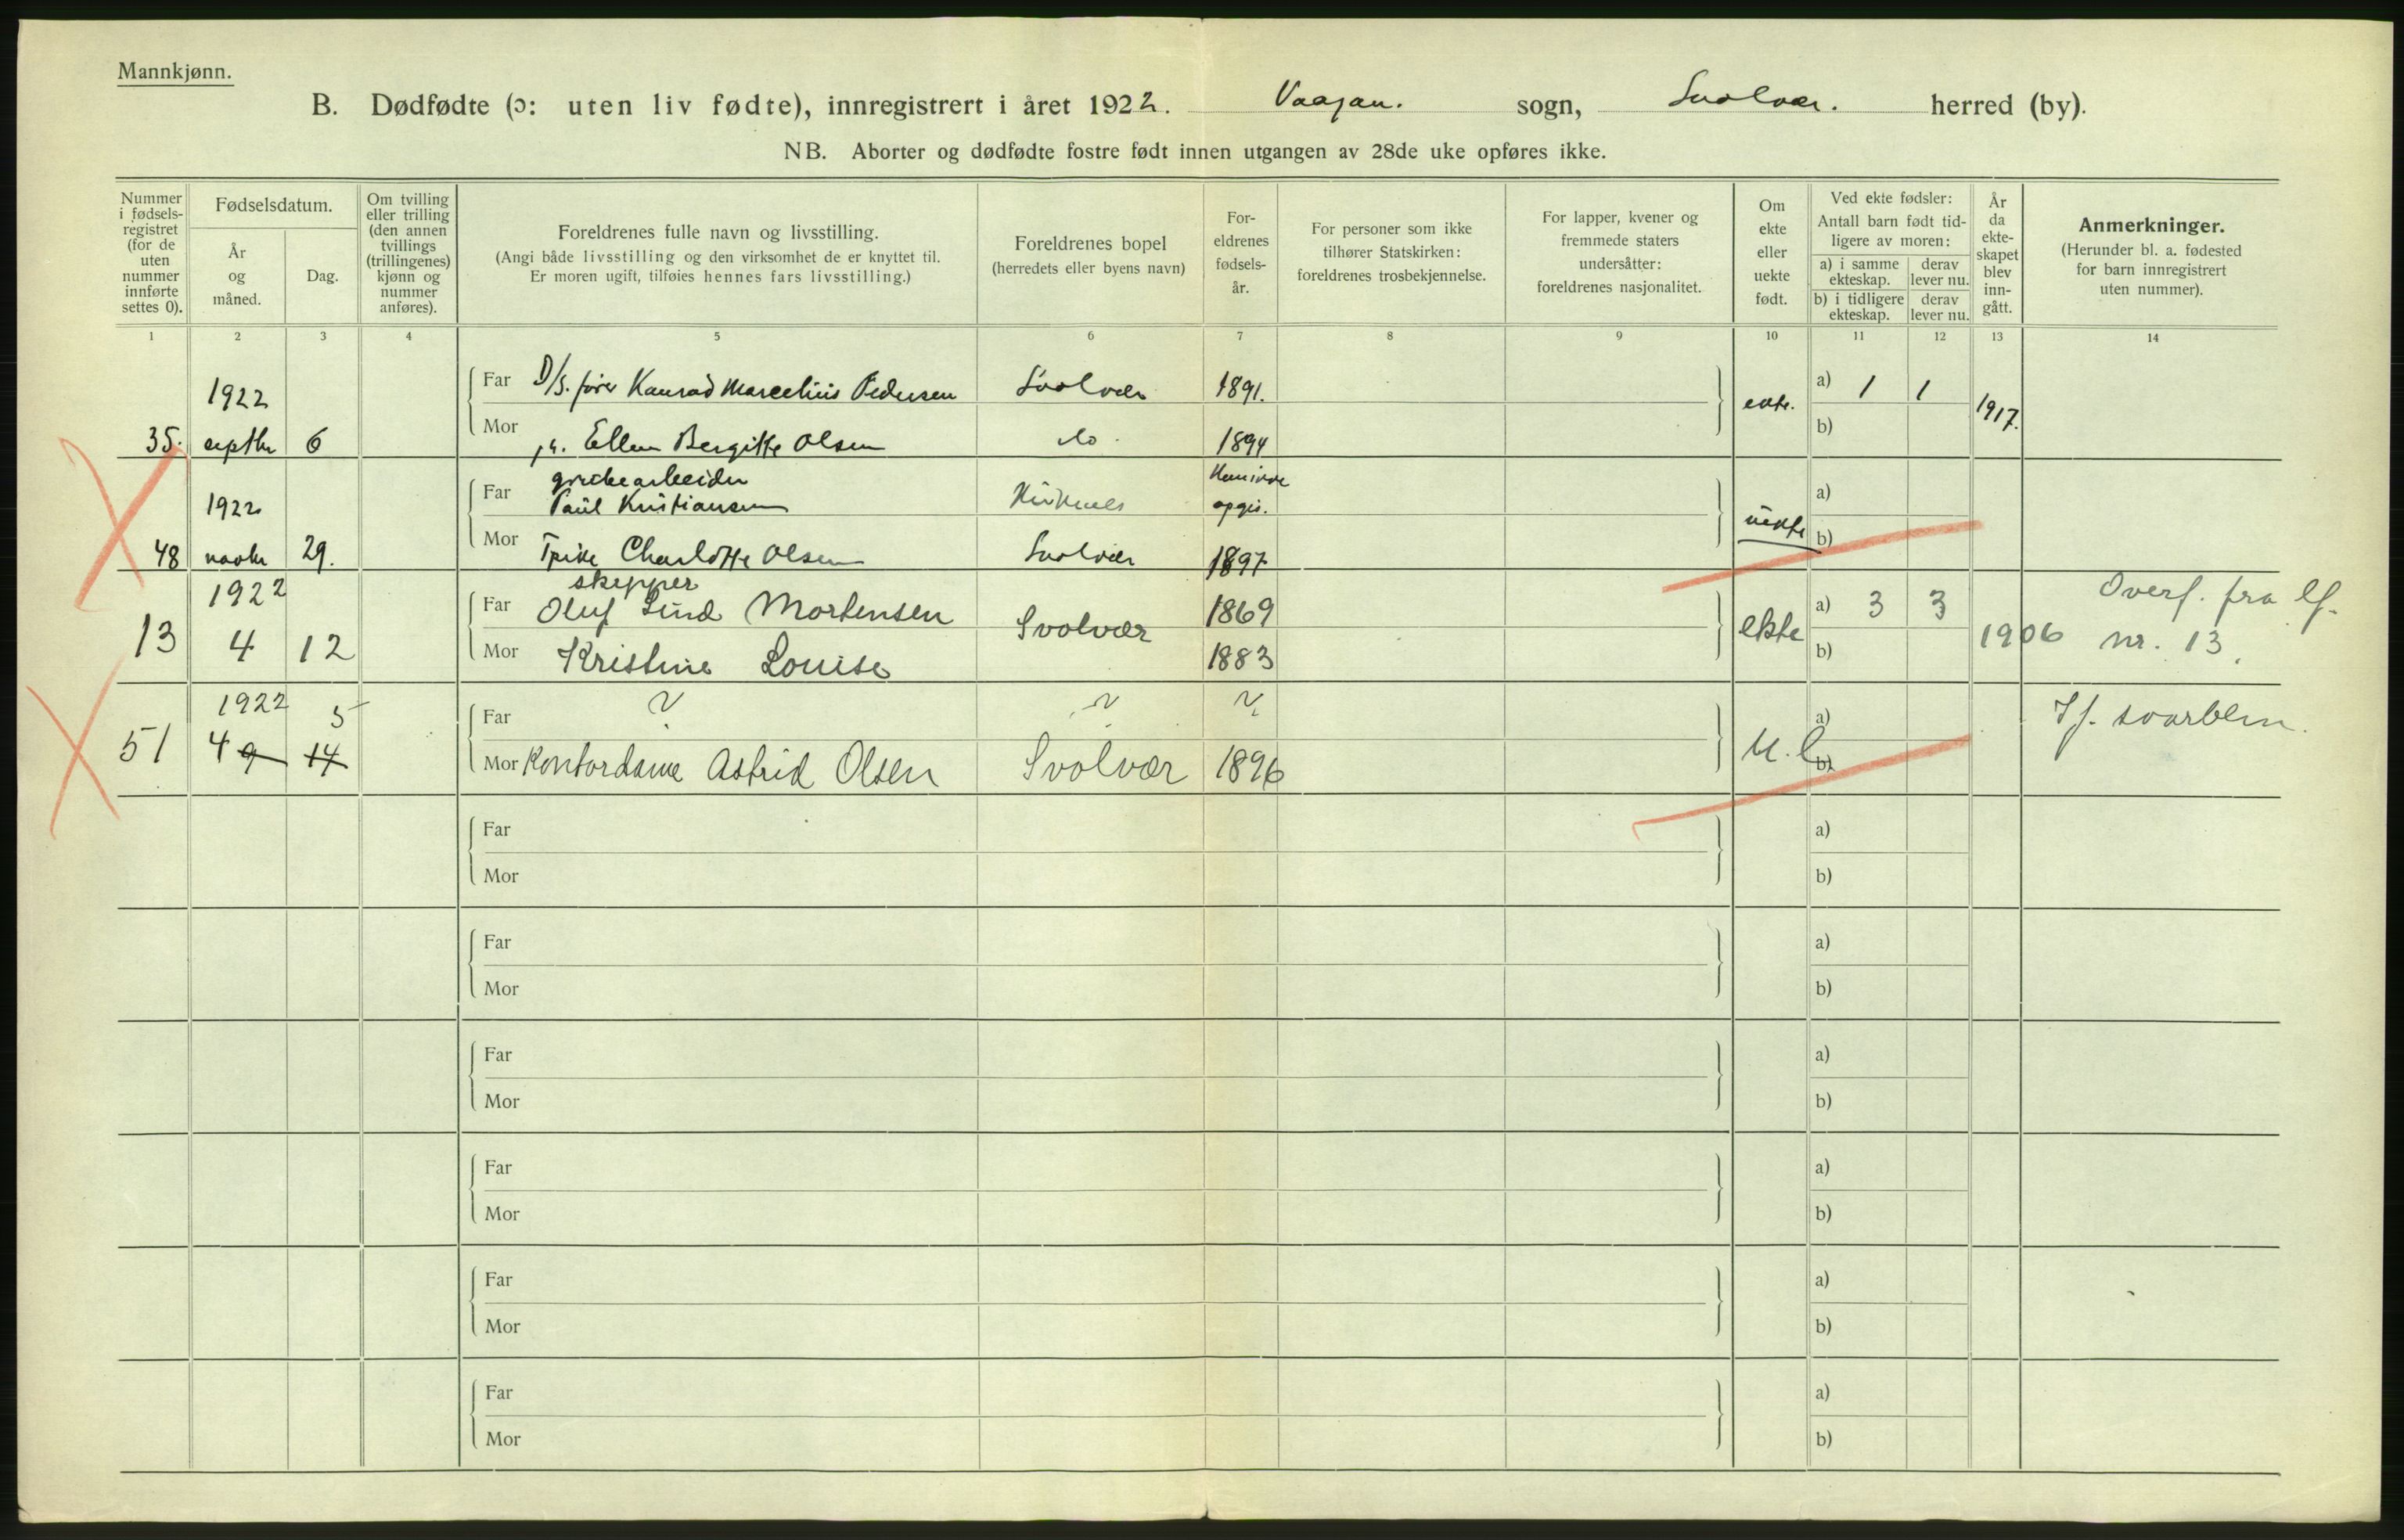 Mannkjønn.
B. Dødfødte (ɔ: uten liv fødte), innregistrert i året 1922. Vaagan. sogn, Svolvær. herred (by).
NB. Aborter og dødfødte fostre født innen utgangen av 28de uke opføres ikke.
Nummer i fødsels-registret (for de uten nummer innførte settes 0).
Fødselsdatum.
År og måned.
Dag.
Om tvilling eller trilling (den annen tvillings (trillingenes) kjønn og nummer anføres).
Foreldrenes fulle navn og livsstilling.
(Angi både livsstilling og den virksomhet de er knyttet til.
Er moren ugift, tilføies hennes fars livsstilling.)
Foreldrenes bopel
(herredets eller byens navn)
For-eldrenes fødsels-år.
For personer som ikke tilhører Statskirken: foreldrenes trosbekjennelse.
For lapper, kvener og fremmede staters undersåtter: foreldrenes nasjonalitet.
Om ekte eller uekte født.
Ved ekte fødsler:
Antall barn født tid-ligere av moren:
a) i samme ekteskap.
derav lever nu.
b) i tidligere ekteskap.
derav lever nu.
År da ekte-skapet blev inn-gått.
Anmerkninger.
(Herunder bl. a. fødested for barn innregistrert uten nummer).
1 2 3 4 5 6 7 8 9 10 11 12 13 14
1922
Far D/S. fører Konrad Marcelius Pedersen Svolvær 1891. ekte. a) 1 1 1917.
35. septbr 6 Mor Ellen Bergitte Olsen do. 1894 b)
1922 Far
Paul Kristiansen Kirkenes opgit. uekte a)
48 novbr 29. Mor Charlotte Olsen Svolvær 1897 b)
1922 skipper
Far Oluf Lind Mortensen Svolvær 1869 ekte a) 3 3 1906 Overf. fra lf. nr. 13.
13 4 12 Mor Kristine Louise 1883 b)
1922 5 Far ? ? ? a)
51 4 9 14 Mor Kontordame Astrid Olsen Svolvær 1896 b)
Far a)
Mor b)
Far a)
Mor b)
Far a)
Mor b)
Far a)
Mor b)
Far a)
Mor b)
Far a)
Mor b)